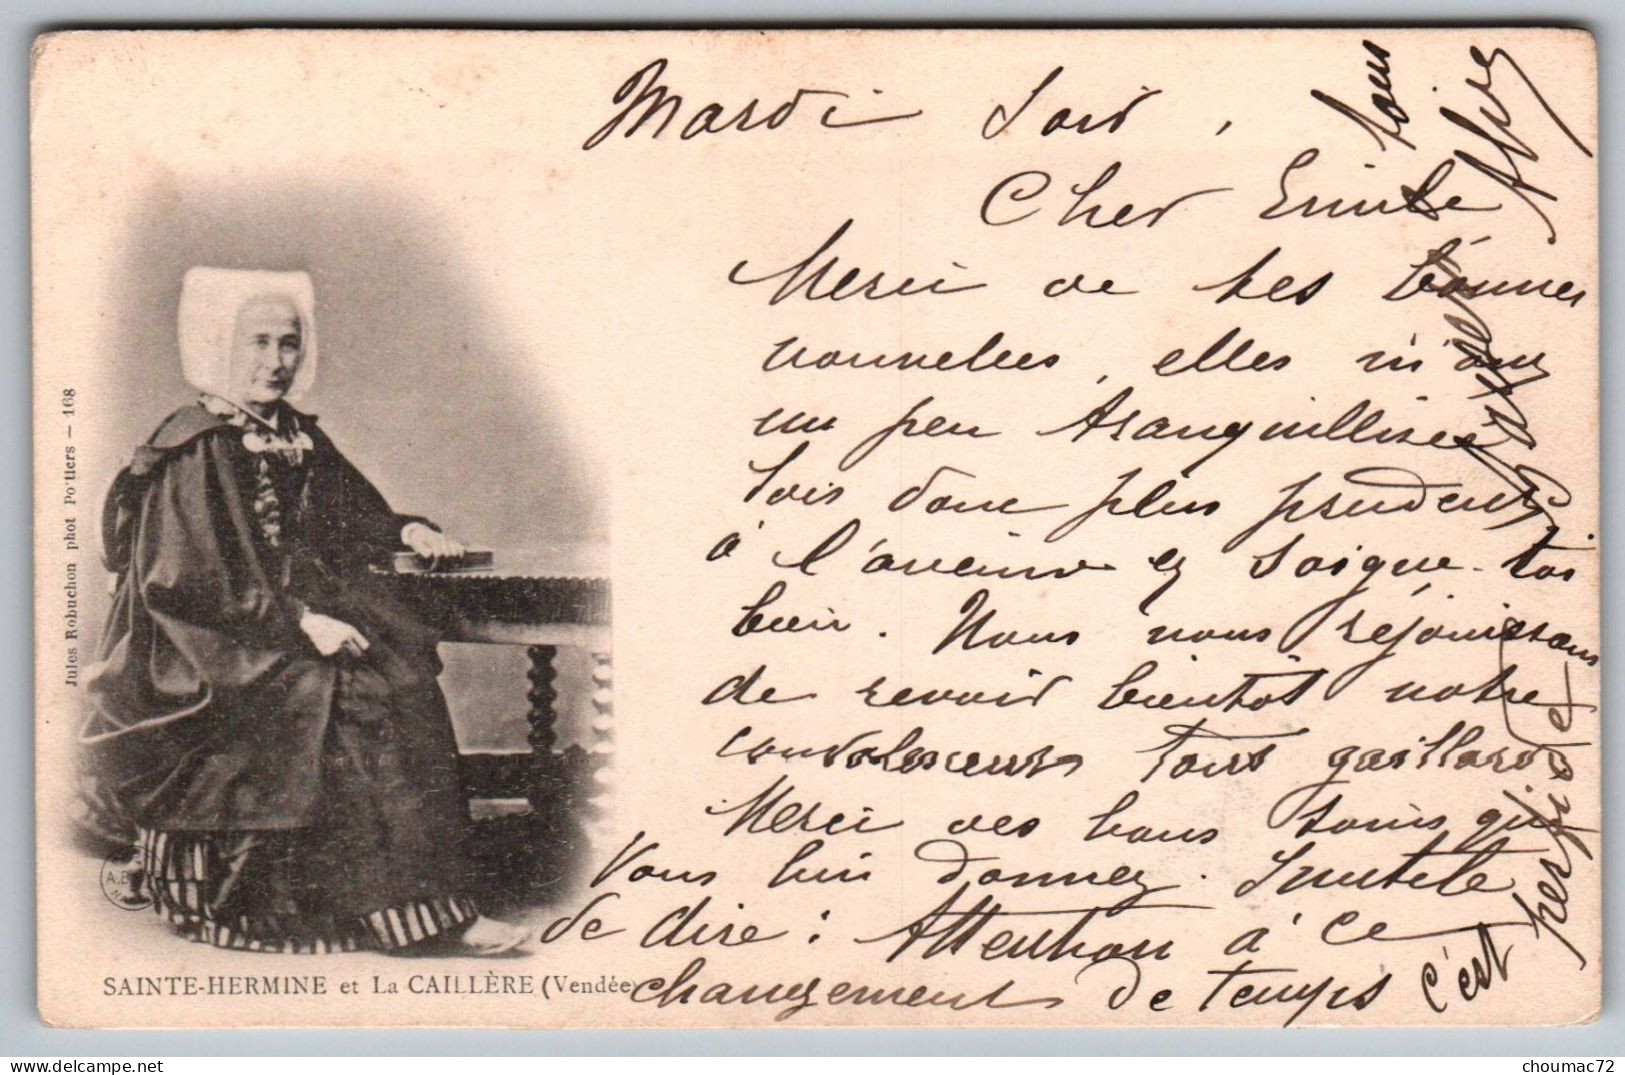 Mardi Soir,
Cher Emile
Merci de tes bonnes
nouvelles, elles m'ont
un peu tranquillisée
Sois donc plus prudent
à l'avenir et soigne-toi
bien. Nous nous réjouissons
de revoir bientôt notre
convalescent tout gaillard
Merci des bons soins que
Vous lui donnez. Inutile
de dire : Attention à ce
changement de temps
c'est perfide
tous
Jules Robuchon phot Poitiers — 168
SAINTE-HERMINE et La CAILLÈRE (Vendée)
choumac72